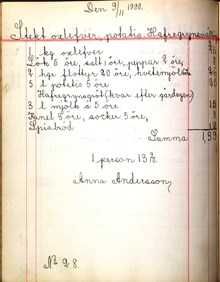 Den 9/11 1900.
Stekt oxlefver, potatis. Hafregrynsgröt
1 kg oxlefver
Lök 5 öre, salt 1 öre, peppar 2 öre,
2 hgr flottyr 20 öre, hvetemjöl
5 l potatis 5 öre
Hafregrynsgröt (kvar efter gårdagen)
3 l mjölk à 5 öre 15
Kanel 3 öre, socker 5 öre, 8
Spisbröd
Summa 1,99
1 person 13
Anna Andersson
No 98.